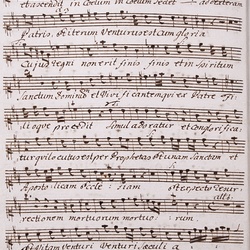 et ascendit in coelum in coelum sedet ad dexteram
Patris. et iterum Venturus est cum gloria
Cujus regni non erit finis finis et in spiritum
Sanctum Dominum et Vivificantem qui ex Patre fi-
lioque procedit Simul adoratur et conglorifica
tur qui locutus est per Prophetas et unam Sanctam et
Apostolicam eccle: siam et expecto resur
rectionem mortuorum mortuo: rum.
et Vitam Venturi Venturi saeculi a